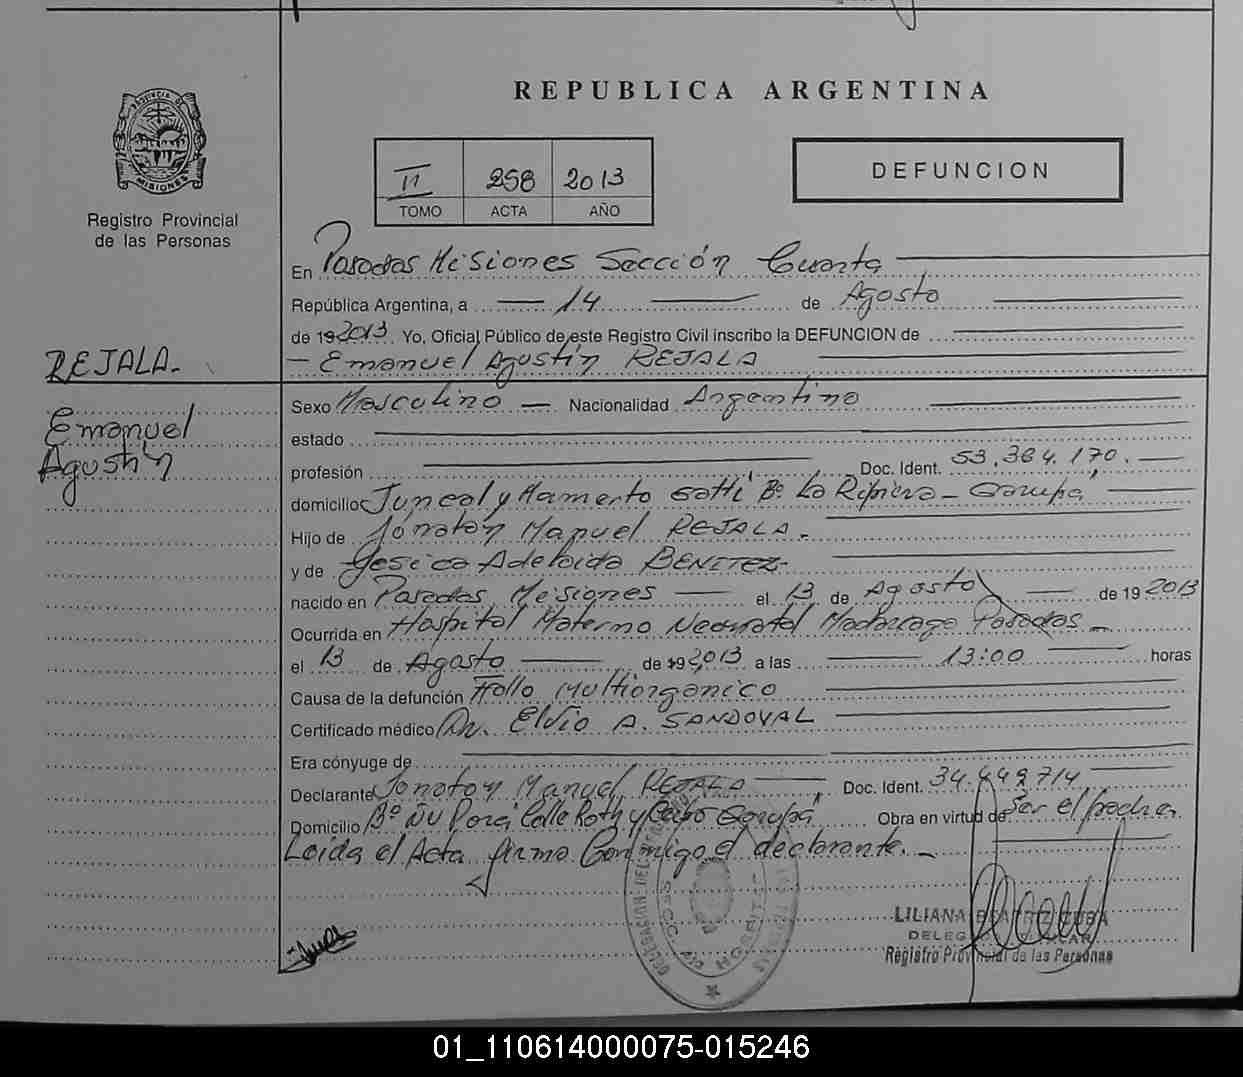 REPUBLICA ARGENTINA
PROVINCIA DE
MISIONES
Registro Provincial
de las Personas
II 258 2013
TOMO ACTA AÑO
DEFUNCION
En Posadas Misiones Sección Cuarta
República Argentina, a 14 de Agosto
de 19 2013. Yo, Oficial Público de este Registro Civil inscribo la DEFUNCION de
Emanuel Agustín REJALA
REJALA.
Emanuel
Agustín
Sexo Masculino Nacionalidad Argentino
estado
profesión Doc. Ident. 53.364.170.
domicilio Juncal y Mamerto Gatti Bº La Ribiera - Garupá
Hijo de Jonatan Manuel REJALA.
y de Yesica Adelaida BENITEZ
nacido en Posadas Misiones el 13 de Agosto de 19 2013
Ocurrida en Hospital Materno Neonatal Madariaga Posadas
el 13 de Agosto de 19 2013 a las 13:00 horas
Causa de la defunción Fallo Multiorganico
Certificado médico Dr. Elvio A. SANDOVAL
Era cónyuge de
Declarante Jonatan Manuel REJALA Doc. Ident. 34.449.714
Domicilio Bº Ñu Porá Calle Roth y Garupá Obra en virtud de Ser el padre.
Leida el Acta firma Conmigo el declarante.
LILIANA BEATRIZ CUBA
Registro Provincial de las Personas
01_110614000075-015246